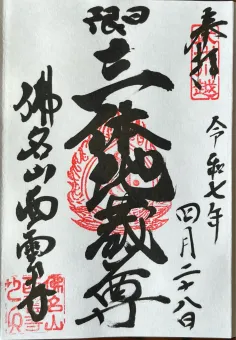 奉拝
令和七年
四月二十八日
日限
三体地蔵尊
佛名山西雲寺